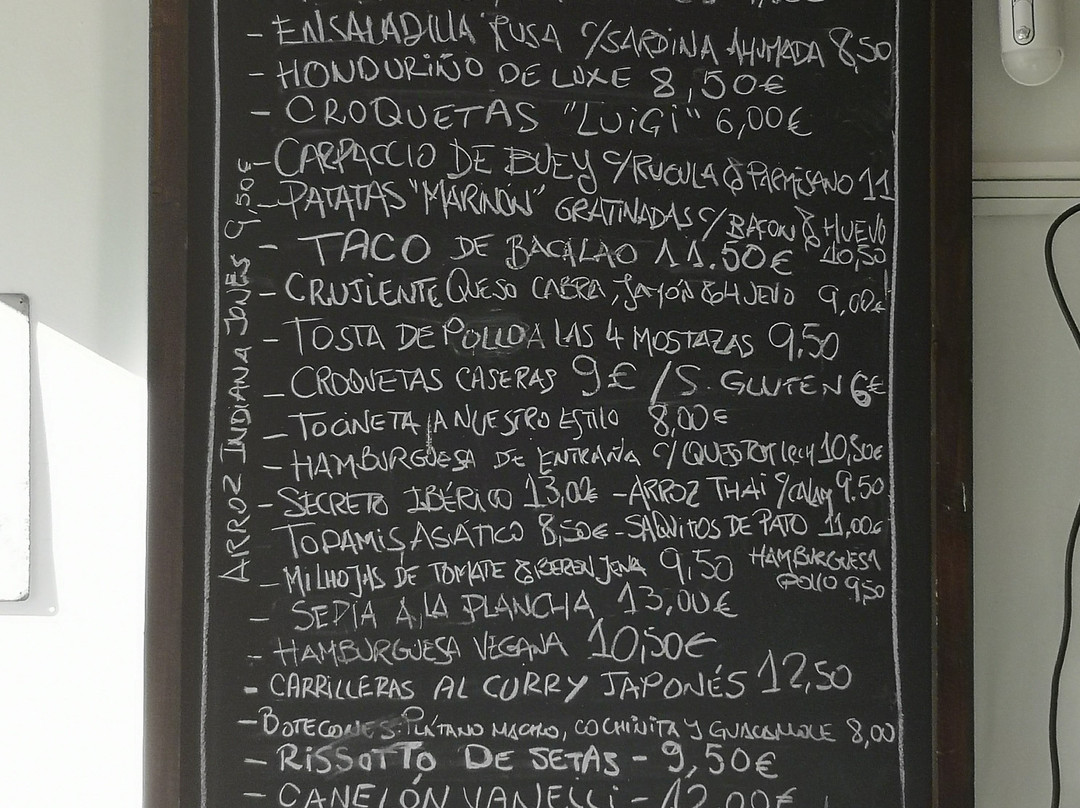 - ENSALADILLA RUSA C/SARDINA AHUMADA 8,50
- HONDURIÑO DE LUXE 8,50€
- CROQUETAS "LUIGI" 6,00€
- CARPACCIO DE BUEY C/RUCULA & PARMESANO 11
- PATATAS "MARINON" GRATINADAS C/ BACON & HUEVO
10,50
- TACO DE BACALAO 11.50€
- CRUJIENTE QUESO CABRA, JAMÓN & HUEVO 9,00€
- TOSTA DE POLLO A LAS 4 MOSTAZAS 9,50
- CROQUETAS CASERAS 9€ /S. GLUTEN 6€
- TOCINETA A NUESTRO ESTILO 8,00€
- HAMBURGUESA DE ENTRAÑA C/QUESO 10,50€
- SECRETO IBÉRICO 13,00€ - ARROZ THAI C/CALAM 9.50
TOPAMIS ASIÁTICO 8,50€ - SAQUITOS DE PATO 11,00€
- MILHOJAS DE TOMATE & BERENJENA 9,50
HAMBURGUESA
POLLO 9,50
- SEPIA A LA PLANCHA 13,00€
- HAMBURGUESA VEGANA 10,50€
- CARRILLERAS AL CURRY JAPONÉS 12,50
- PLÁTANO MACHO, COCHINITA Y GUACAMOLE 8,00
- RISSOTTO DE SETAS - 9,50€
- CANELÓN VANELLI - 12,00€
ARROZ INDIANA JONES 9,50€